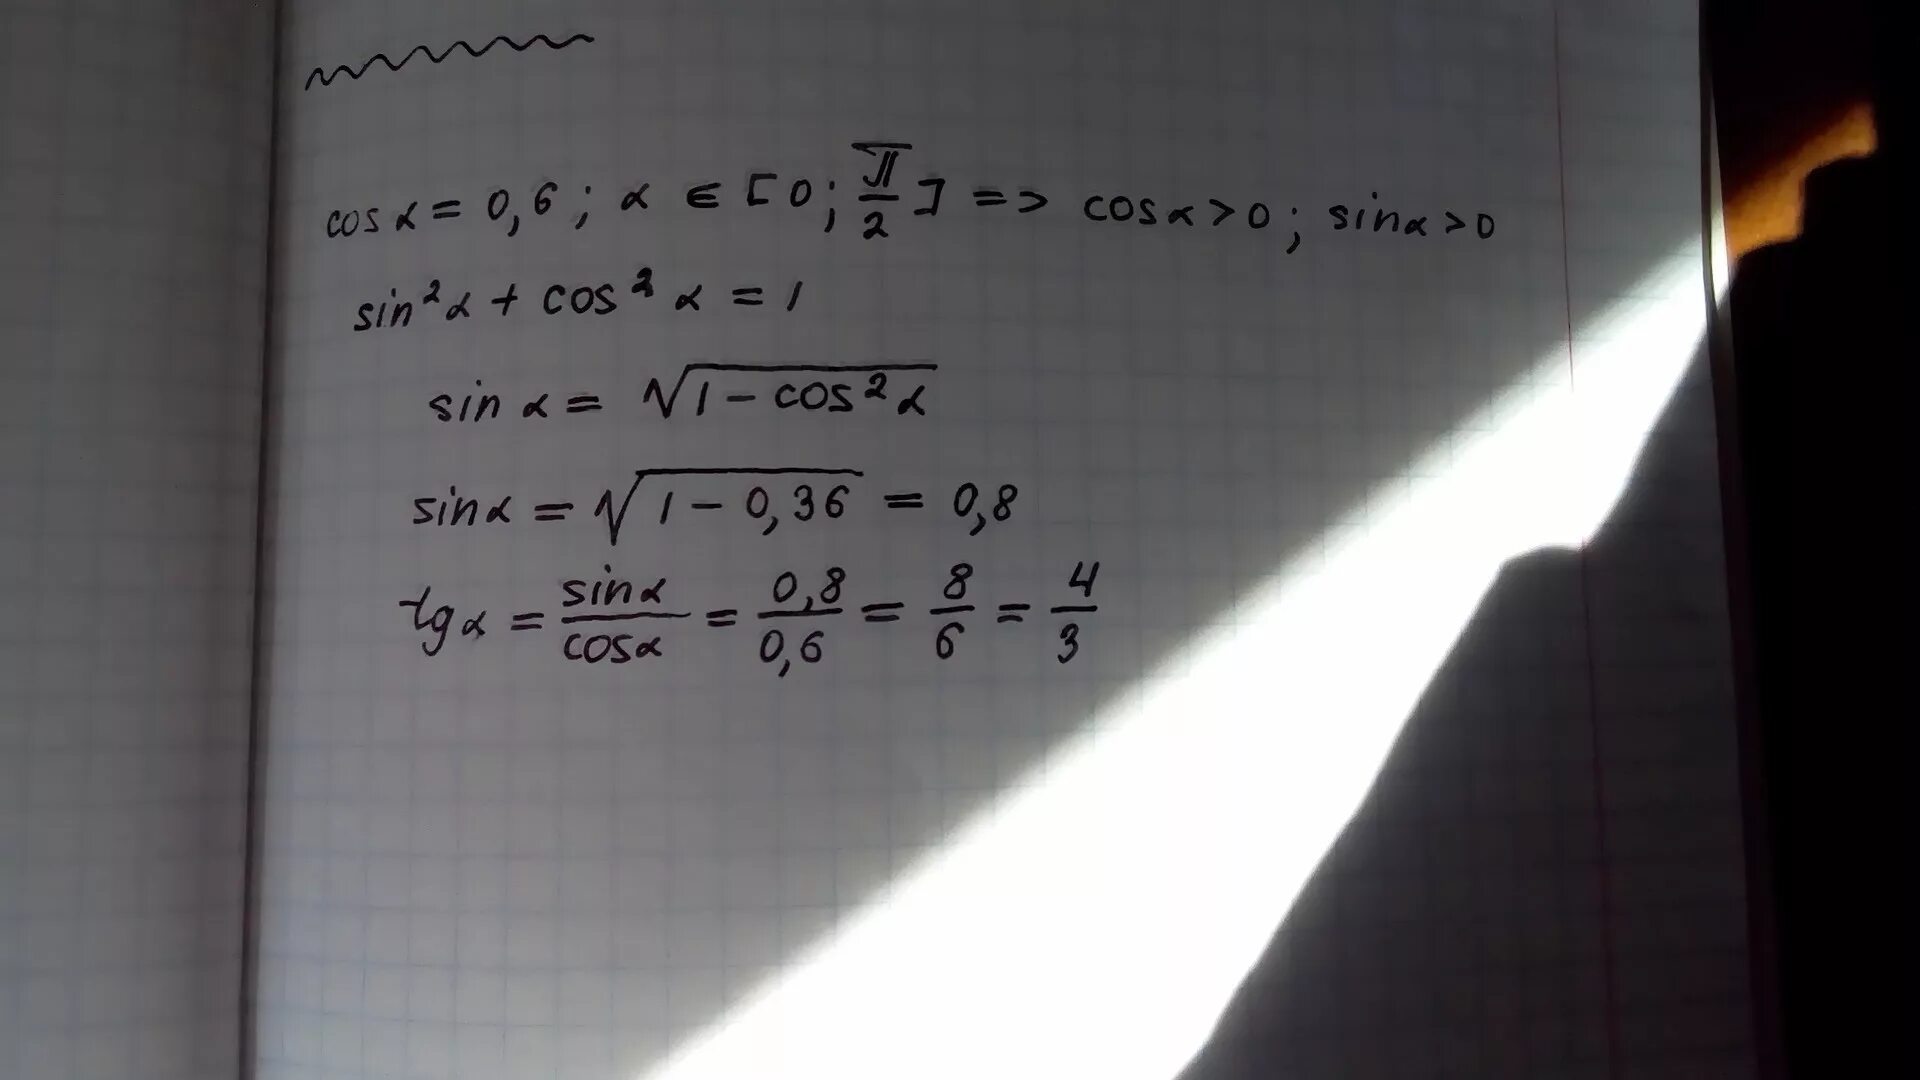 cos α = 0,6 ; α ∈ [0 ; π/2] => cos α > 0 ; sin α > 0
sin² α + cos² α = 1
sin α = √(1 - cos² α)
sin α = √(1 - 0,36) = 0,8
tg α = sin α/cos α = 0,8/0,6 = 8/6 = 4/3